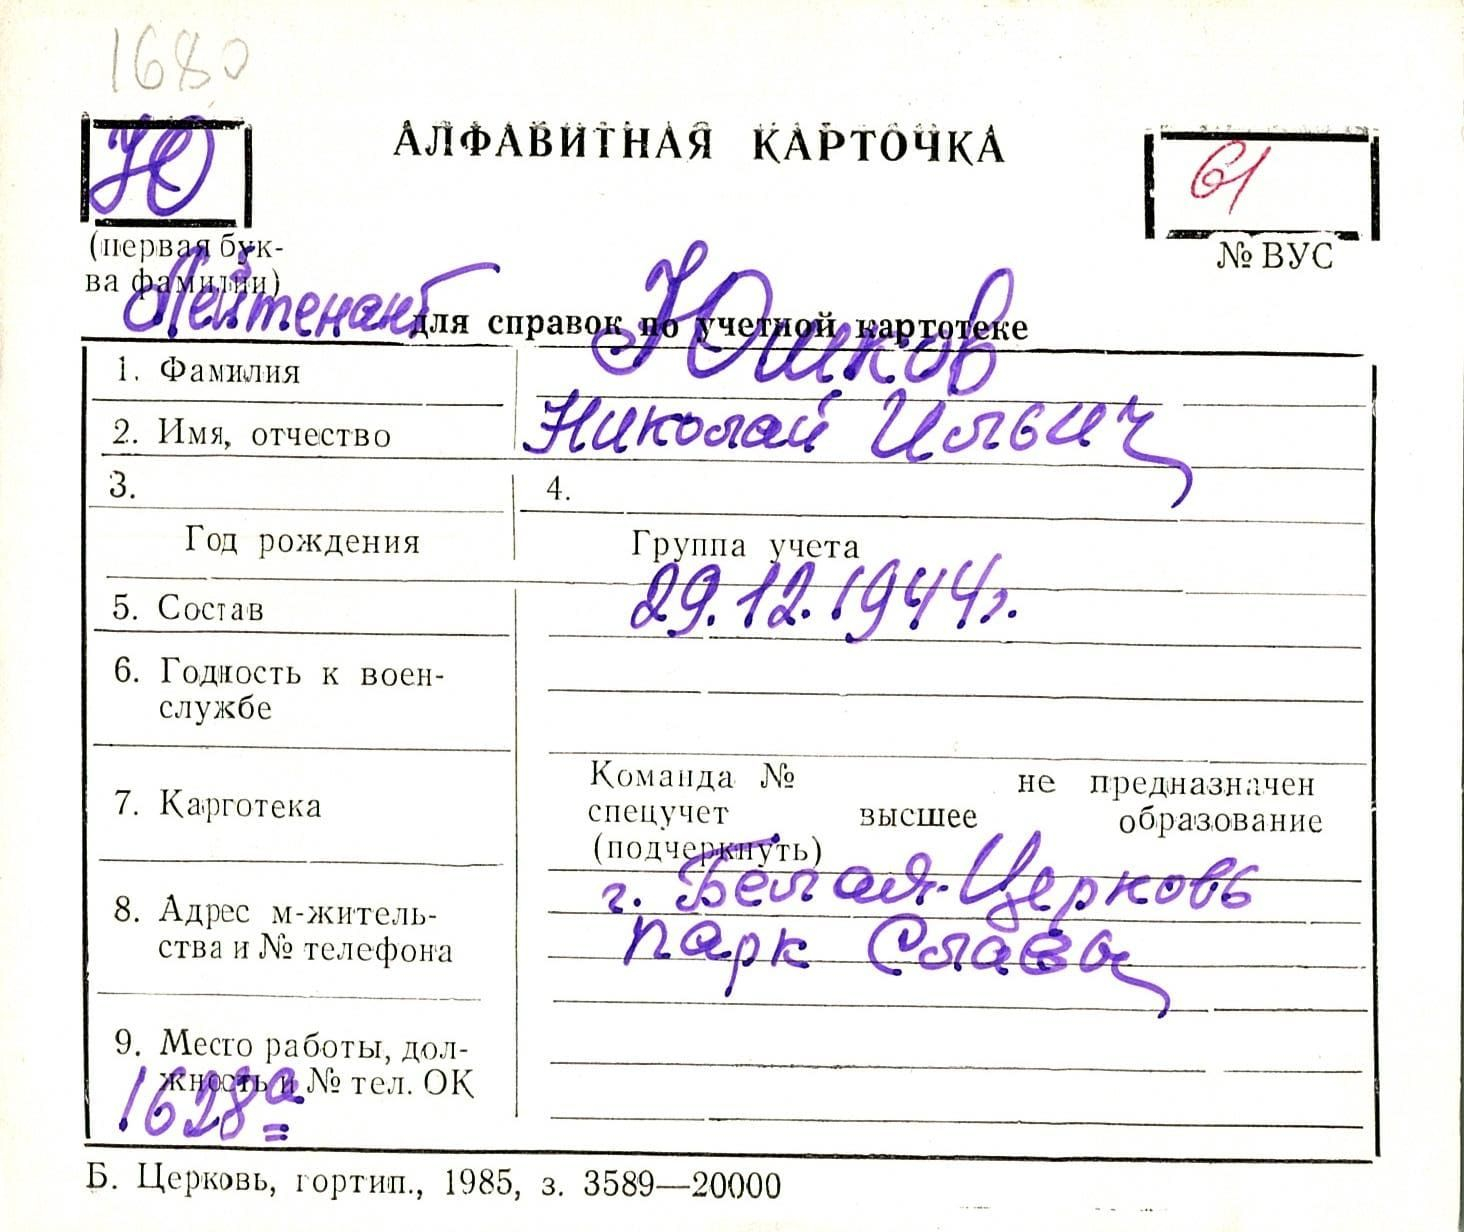 1680
Ю
АЛФАВИТНАЯ КАРТОЧКА
61
(первая бук-
ва фамилии)
№ ВУС
Лейтенант
для справок по учетной картотеке
1. Фамилия Юшков
2. Имя, отчество Николай Ильич
3. 4.
Год рождения Группа учета
5. Состав 29.12.1944г.
6. Годность к воен-
службе
Команда № не предназначен
7. Картотека спецучет высшее образование
(подчеркнуть)
г. Белая-Церковь
8. Адрес м-житель-
ства и № телефона парк Славы
9. Место работы, дол-
жность и № тел. ОК
1628а
Б. Церковь, гортип., 1985, з. 3589—20000